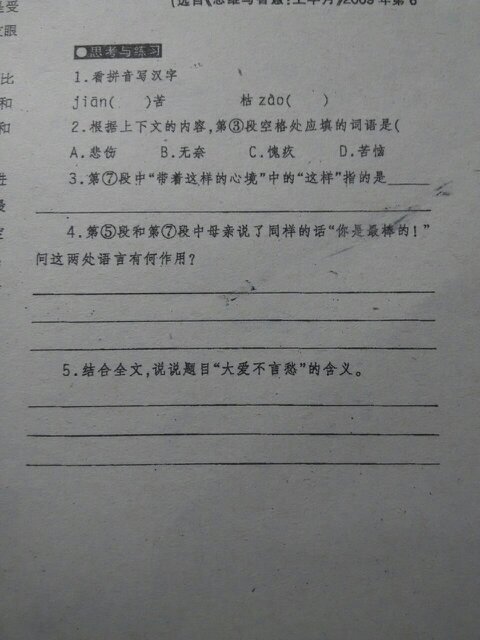 是受
眼
比
和
和
(选自《思维与智慧·上半月》2009年第6
●思考与练习
1.看拼音写汉字
jiān(    )苦    枯zào(    )
2.根据上下文的内容,第③段空格处应填的词语是(
A.悲伤    B.无奈    C.愧疚    D.苦恼
3.第⑦段中“带着这样的心境”中的“这样”指的是
4.第⑤段和第⑦段中母亲说了同样的话“你是最棒的!”
问这两处语言有何作用?
5.结合全文,说说题目“大爱不言愁”的含义。